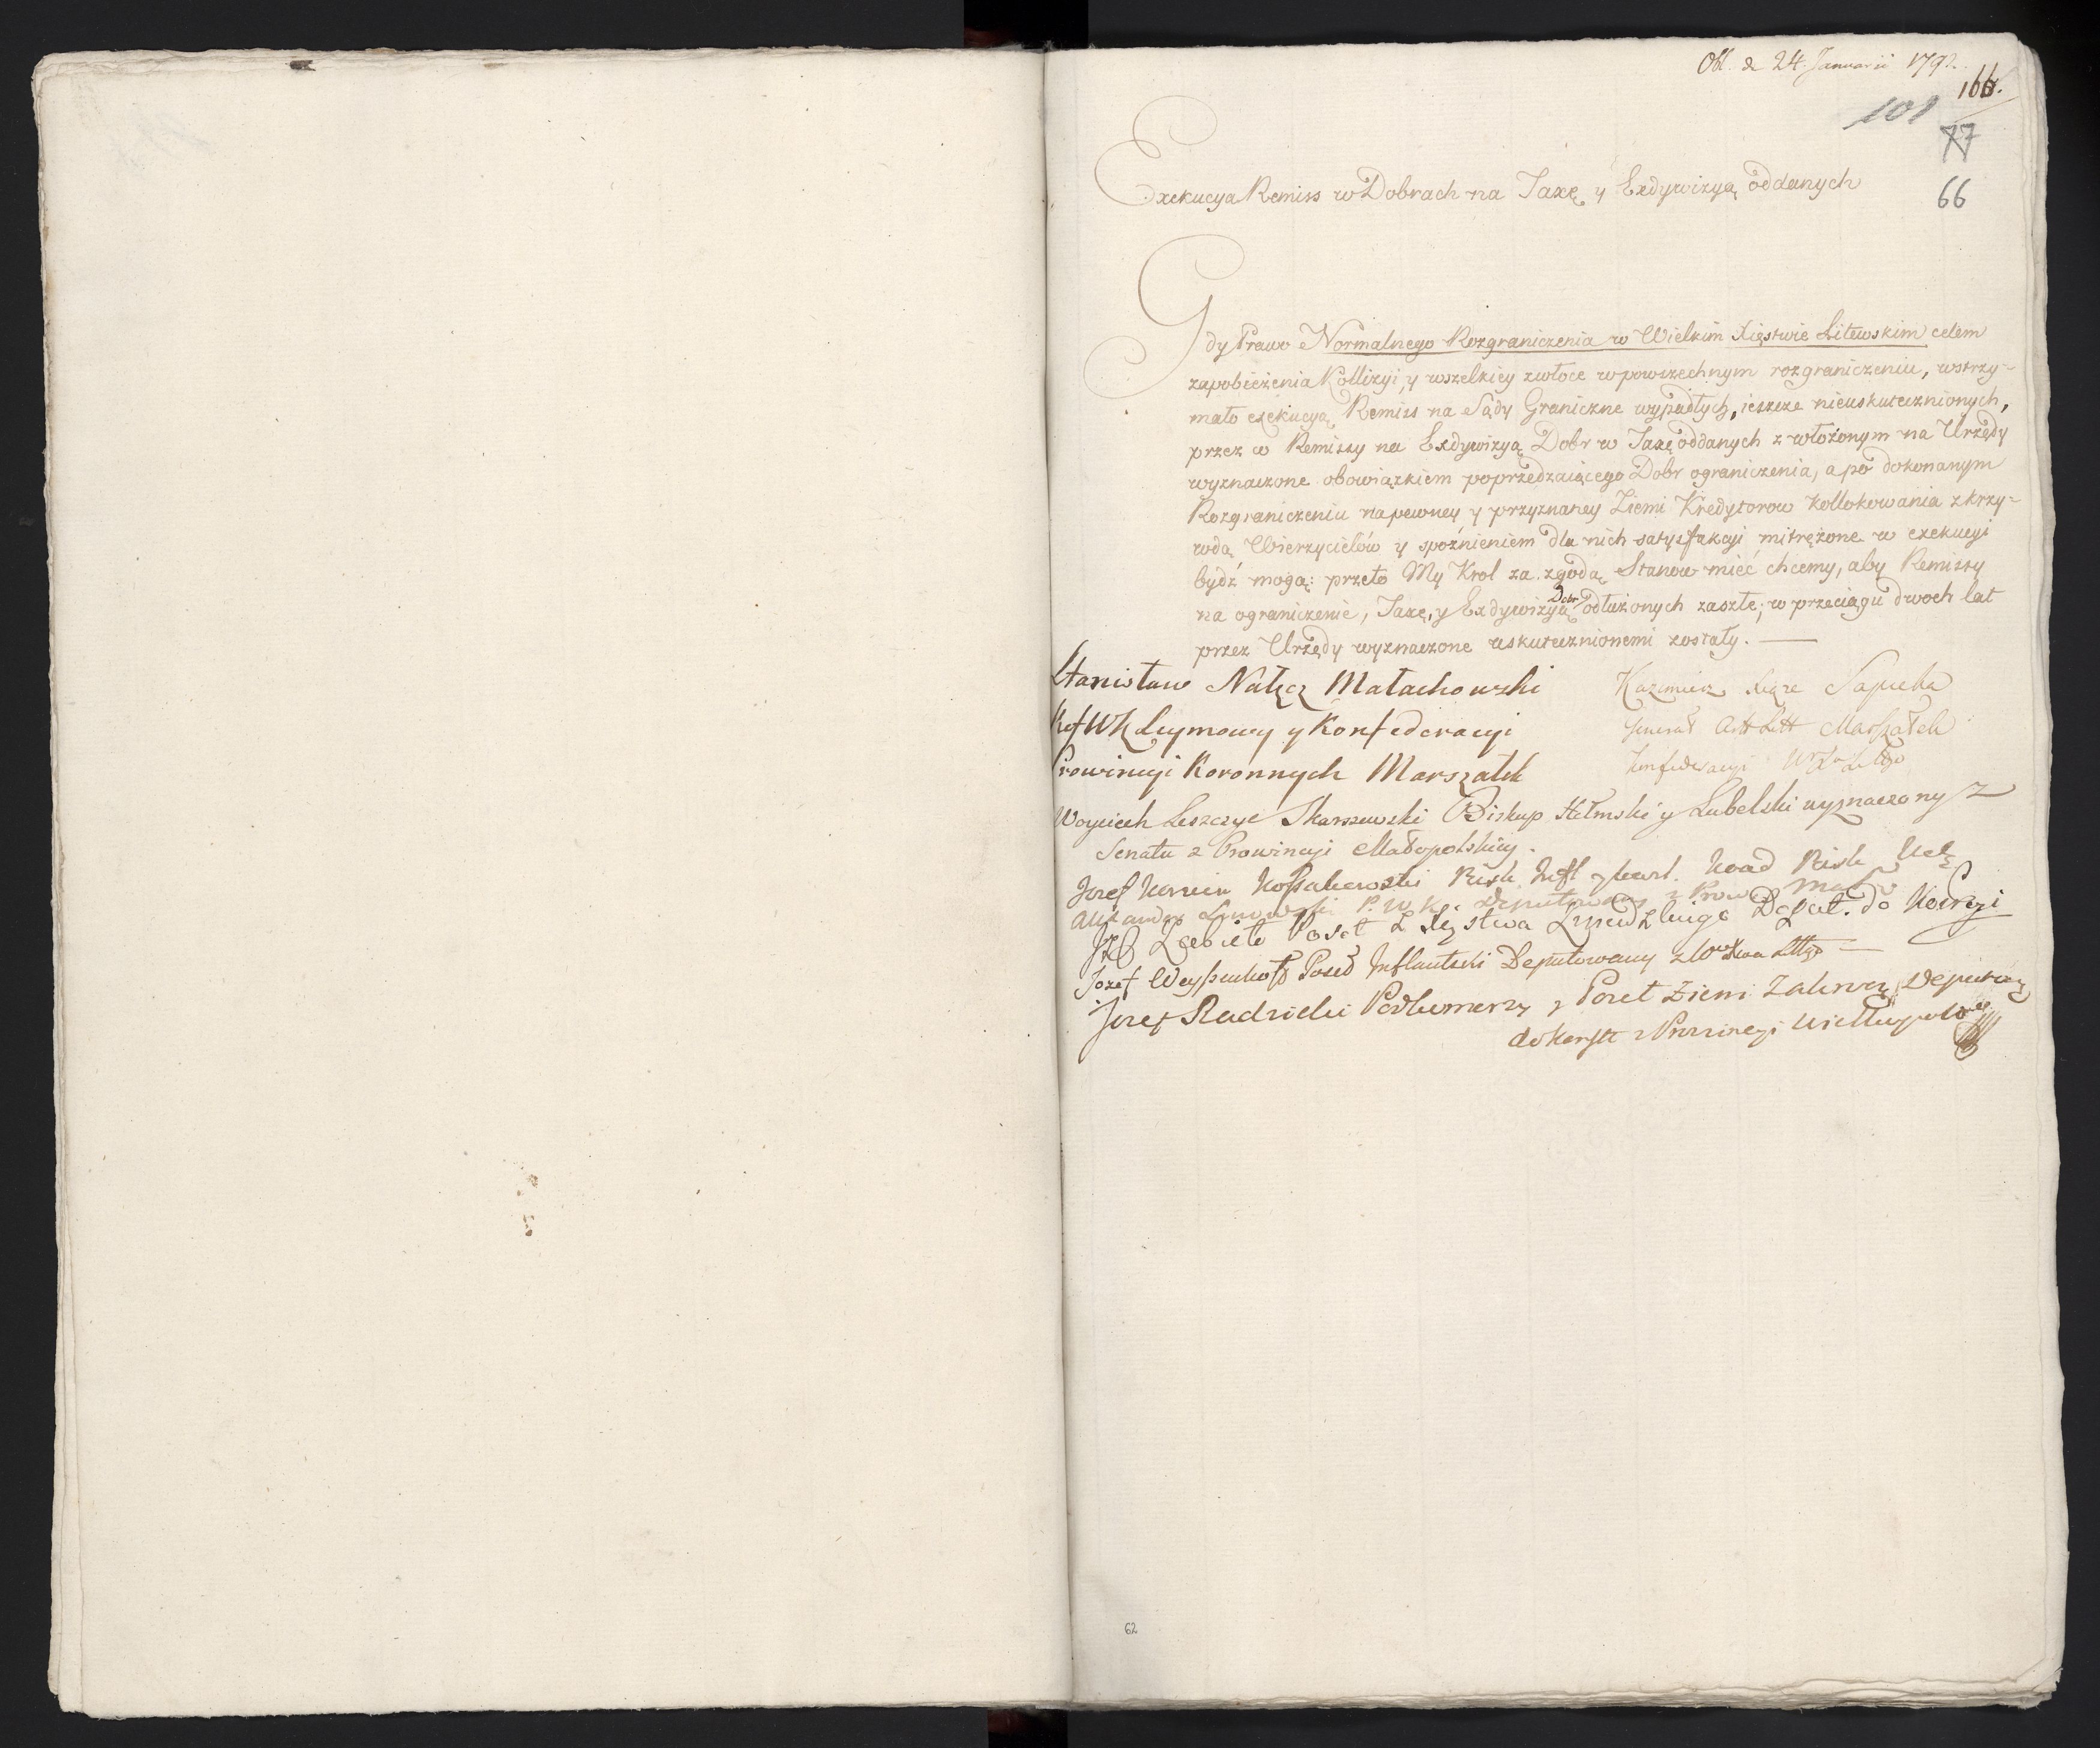 Obl. d. 24. Januarii 1792.
166.
101
77
66
Exekucya Remiss w Dobrach na Taxę y Exdywizyą oddanych
Gdy Prawo Normalnego Rozgraniczenia w Wielkim Xięstwie Litewskim celem
zapobieżenia Kollizyi, y wszelkiey zwłoce w powszechnym rozgraniczeniu, wstrzy-
mało exekucyą Remiss na Sądy Graniczne wypadłych, ieszcze nieuskutecznionych,
przez co Remissy na Exdywizyą Dobr w Taxę oddanych z włożonym na Urzędy
wyznaczone obowiązkiem poprzedzaiącego Dobr ograniczenia, a po dokonanym
Rozgraniczeniu na pewney y przyznaney Ziemi Kredytorow kollokowania z krzy-
wdą Wierzycielów y spoźnieniem dla nich satysfakcyi mitrężone w exekucyi
bydź mogą: przeto My Krol za zgodą Stanow mieć chcemy, aby Remissy
na ograniczenie, Taxę, y Exdywizyą Dobr odłużonych zaszłe, w przeciągu dwoch lat
przez Urzędy wyznaczone uskutecznionemi zostały.
Stanisław Nałęcz Małachowski
Ref WK Seymowy y Konfederacyi
Prowincyi Koronnych Marszałek
Kazimierz Xiąże Sapieha
Generał Artt Litt Marszałek
Konfederacyi W X Litto
Woyciech Leszczyc Skarszewski Biskup Hełmski y Lubelski wyznaczony z
Senatu z Prowincyi Małopolskiey.
Jozef Korwin Kossakowski Bisk. Infl. y Kurl. Koad Bisk
Alexander Linowski P. W. K. Deputowany z Prow Małop
Zabiełło Poseł z Xięstwa Żmudzkiego Deput. do Konstyi
Jozef Weyssenhoff Poseł Inflantski Deputowany z W Xtwa Littgo
Jozef Radzicki Podkomorzy y Poseł Ziemi Zakrocz Deputowany
do Konstt z Prowincyi Wielkopolskiey
62